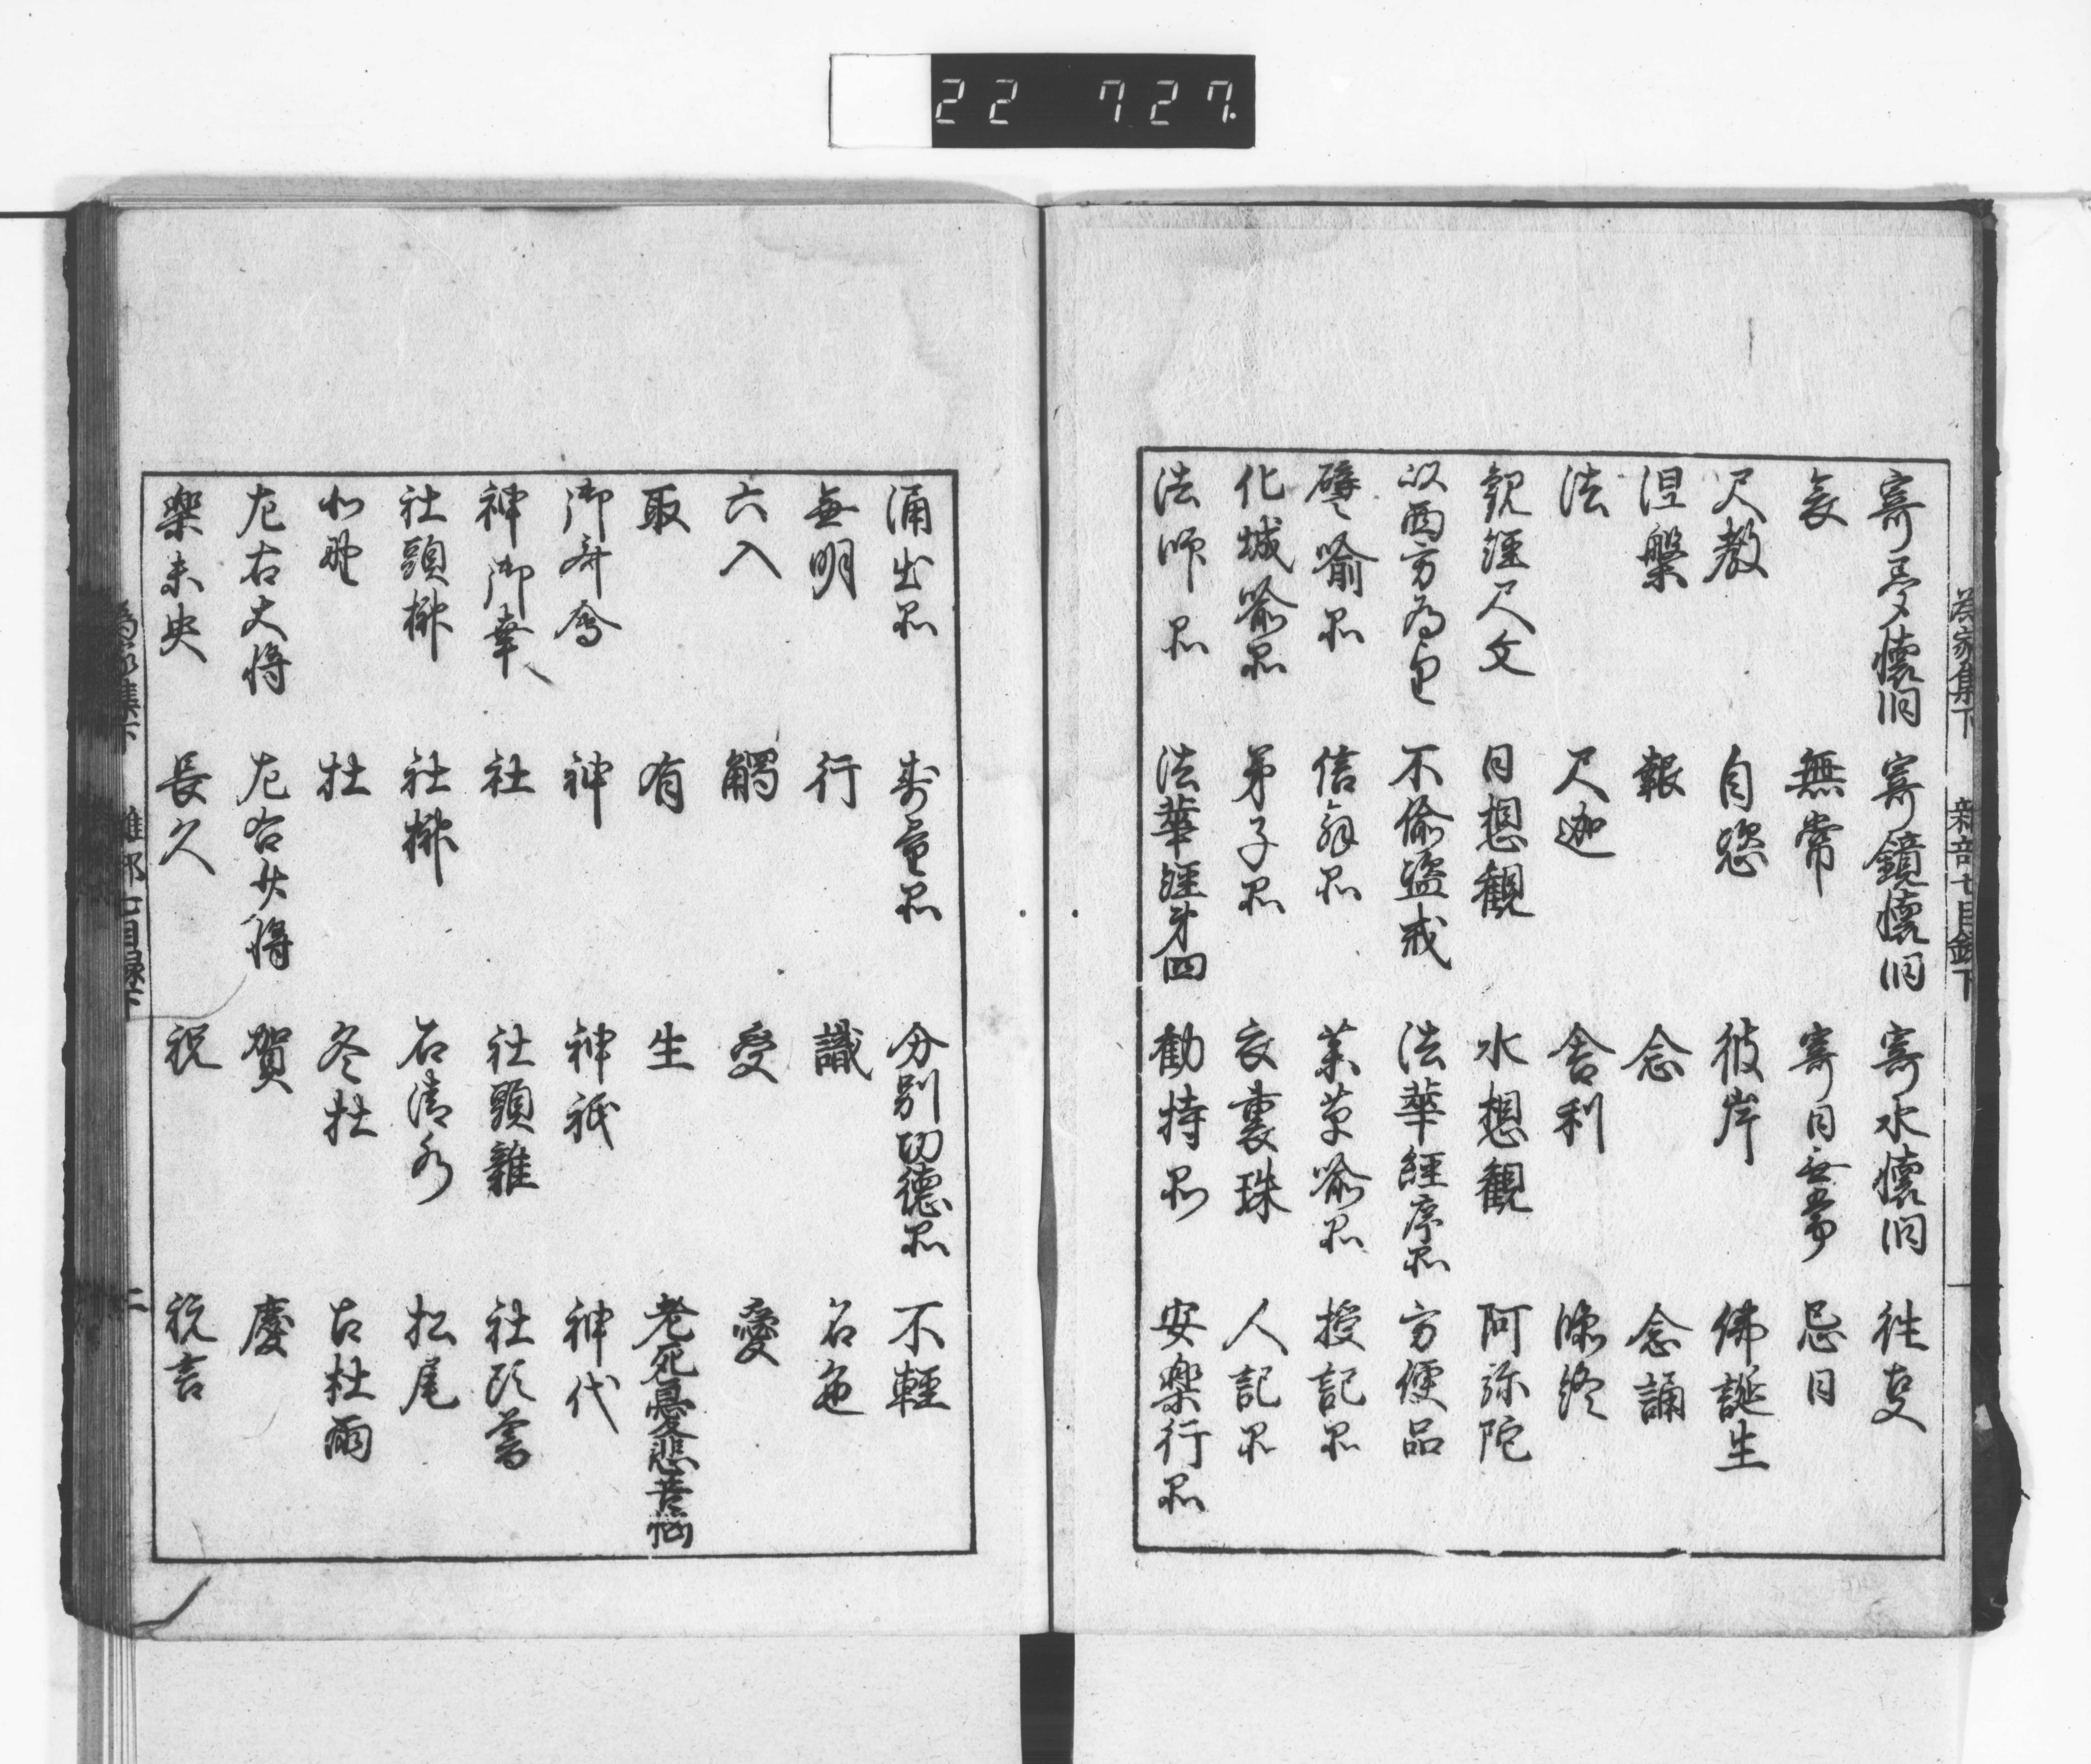 22 727.
為家集下 雑部七目録下
寄夢懐旧 寄鏡懐旧 寄水懐旧 往事
哀 無常 寄日無常 忌日
尺教 自恣 彼岸 佛誕生
涅槃 報 念 念誦
法 尺迦 舎利 臨終
観経尺文 日想觀 水想觀 阿弥陀
以西方為 不偸盗戒 法華經序品 方便品
譬喩品 信解品 薬草喩品 授記品
化城喩品 弟子品 衣裏珠 人記品
法師品 法華経第四 勧持品 安楽行品
涌出品 寿量品 分別功徳品 不輕
無明 行 識 名色
六入 觸 受 愛
取 有 生 老死憂悲苦悩
神 神祇 神代
神御幸 社 社頭雜 社頭
社頭榊 社榊 石清水 松尾
北野 杜 冬杜 古杜雨
左右大将 左右少将 賀 慶
楽未央 長久 祝 祝言
為家集下 雑部七目録下 二